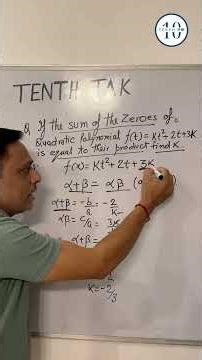 10
TENTH
TENTH TAK
Q. If the sum of the Zeroes of
Quadratic Polynomial f(t)=Kt²-2t+3K
is equal to their product find K
f(x) = Kt²+2t+3K
α+β = αβ
α+β = -b/a = -2/K
αβ = c/a = 3K
α+β =
K = -2/3